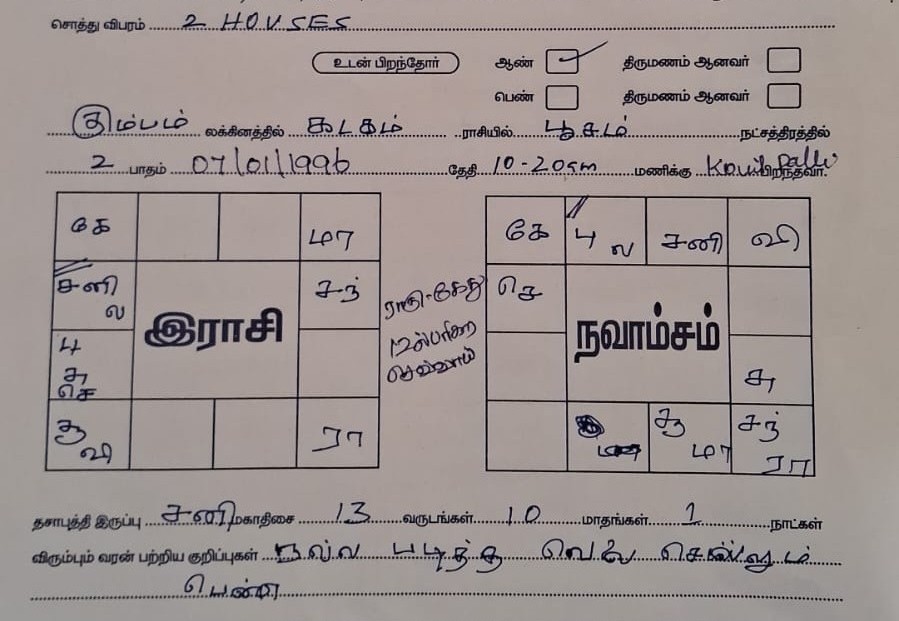 சொத்து விபரம் 2 HOUSES
உடன் பிறந்தோர் ஆண் ✓ திருமணம் ஆனவர்
பெண் திருமணம் ஆனவர்
கும்பம் லக்கினத்தில் கடகம் ராசியில் பூசம் நட்சத்திரத்தில்
2 பாதம் 07/01/1996 தேதி 10-20am மணிக்கு பிறந்தவர்.
கே மா
சனி ல சந்
இராசி
பு சு செ
சூ வி ரா
ராகு-கேது
செவ்வாய்
கே பு ல சனி வி
செ
நவாம்சம்
சு
சூ மா சந் ரா
தசாபுத்தி இருப்பு சனி மகாதிசை 13 வருடங்கள் 10 மாதங்கள் 1 நாட்கள்
விரும்பும் வரன் பற்றிய குறிப்புகள் நல்ல படித்த செல்லும்
பெண்